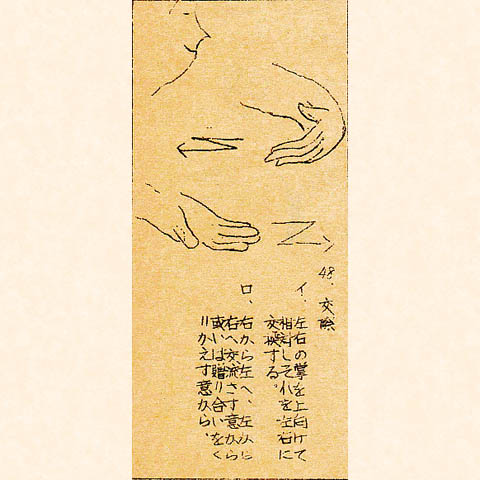 48. 交際
イ. 左右の掌を上向けて
相対しそれを左右に
交換する。
ロ、右から左へ、左から
右へ交流さす意から
或いは贈り合いをく
りかえす意から。